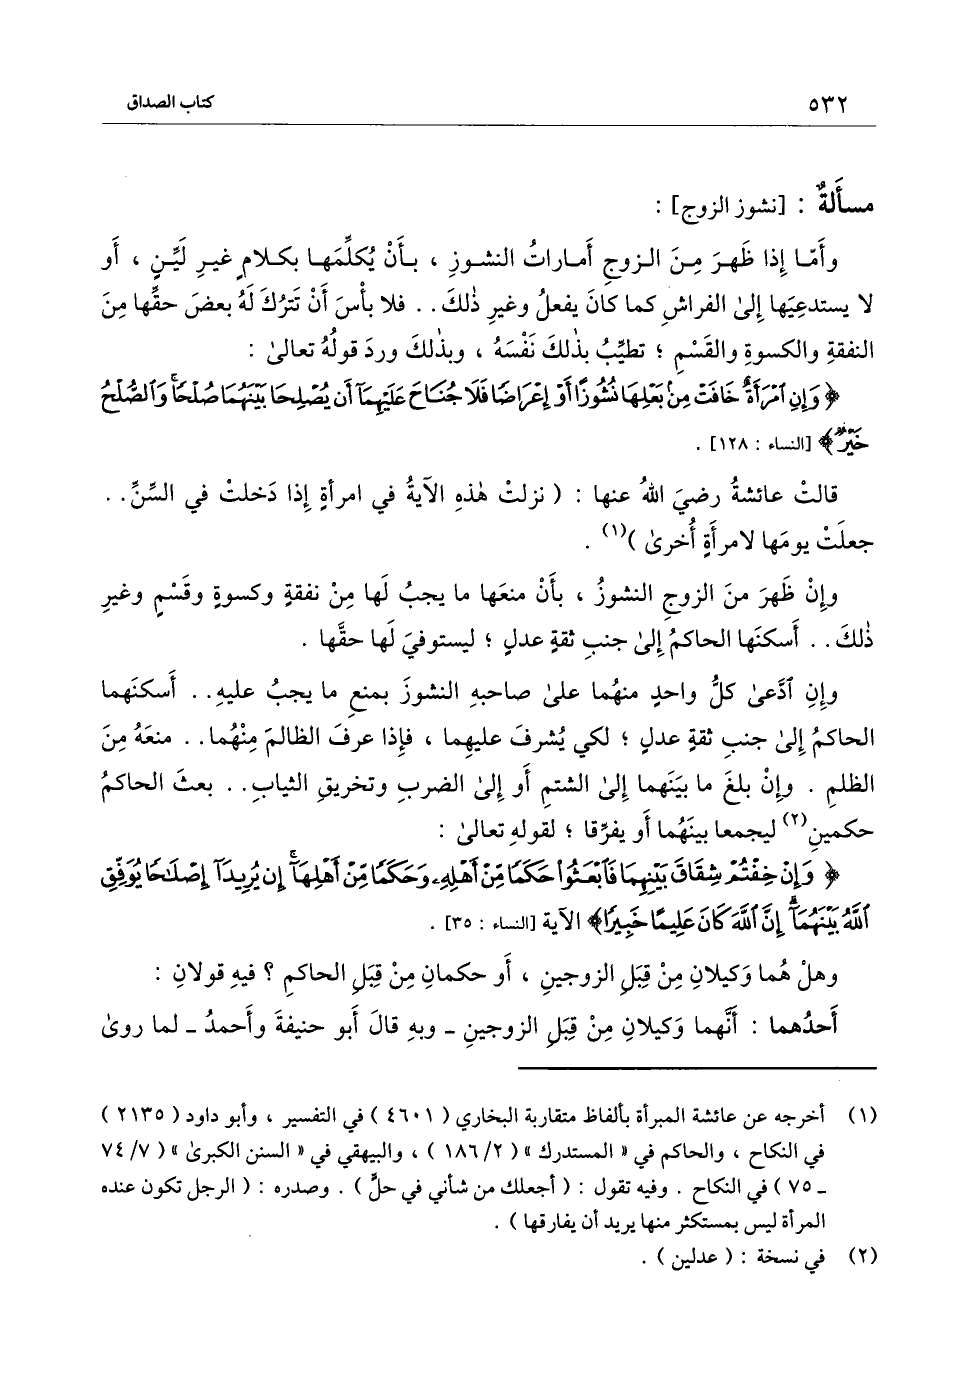 ٥٣٢ كتاب الصداق
مسأَلةٌ : [نشوز الزوج] :
وأَمّا إِذا ظَهرَ مِنَ الزوجِ أَماراتُ النشوزِ ، بأَنْ يُكلِّمَها بكلامٍ غيرِ لَيِّنٍ ، أَو
لا يستدعِيَها إِلىٰ الفراشِ كما كانَ يفعلُ وغيرِ ذٰلكَ . . فلا بأْسَ أَنْ تَترُكَ لَهُ بعضَ حقِّها مِنَ
النفقةِ والكسوةِ والقَسْمِ ؛ تطيِّبُ بذٰلكَ نَفْسَهُ ، وبذٰلكَ وردَ قولُهُ تعالىٰ :
﴿ وَإِنِ ٱمْرَأَةٌ خَافَتْ مِنۢ بَعْلِهَا نُشُوزًا أَوْ إِعْرَاضًا فَلَا جُنَاحَ عَلَيْهِمَآ أَن يُصْلِحَا بَيْنَهُمَا صُلْحًا ۚ وَٱلصُّلْحُ
خَيْرٌ ﴾ [النساء : ١٢٨] .
قالتْ عائشةُ رضيَ اللهُ عنها : ( نزلتْ هٰذهِ الآيةُ في امرأةٍ إِذا دَخلتْ في السِّنِّ . .
جعلَتْ يومَها لامرأَةٍ أُخرىٰ )(١) .
وإِنْ ظَهرَ منَ الزوجِ النشوزُ ، بأَنْ منعَها ما يجبُ لَها مِنْ نفقةٍ وكسوةٍ وقَسْمٍ وغيرِ
ذٰلكَ . . أَسكنَها الحاكمُ إِلىٰ جنبِ ثقةٍ عدلٍ ؛ ليستوفيَ لَها حقَّها .
وإِنِ ٱدَّعىٰ كلُّ واحدٍ منهُما علىٰ صاحبهِ النشوزَ بمنعِ ما يجبُ عليهِ . . أَسكنَهما
الحاكمُ إِلىٰ جنبِ ثقةٍ عدلٍ ؛ لكي يُشرفَ عليهِما ، فإِذا عرفَ الظالمَ مِنْهُما . . منعَهُ مِنَ
الظلمِ . وإِنْ بلغَ ما بيَنَهما إِلىٰ الشتمِ أَو إِلىٰ الضربِ وتخريقِ الثيابِ . . بعثَ الحاكمُ
حكمينِ(٢) ليجمعا بينَهُما أَو يفرِّقا ؛ لقولهِ تعالىٰ :
﴿ وَإِنْ خِفْتُمْ شِقَاقَ بَيْنِهِمَا فَٱبْعَثُوا۟ حَكَمًا مِّنْ أَهْلِهِۦ وَحَكَمًا مِّنْ أَهْلِهَآ ۚ إِن يُرِيدَآ إِصْلَٰحًا يُوَفِّقِ
ٱللَّهُ بَيْنَهُمَآ ۗ إِنَّ ٱللَّهَ كَانَ عَلِيمًا خَبِيرًا ﴾ الآية [النساء : ٣٥] .
وهلْ هُما وَكيلانِ مِنْ قِبَلِ الزوجينِ ، أَو حكمانِ مِنْ قِبَلِ الحاكمِ ؟ فيهِ قولانِ :
أَحدُهما : أَنَّهما وَكيلانِ مِنْ قِبَلِ الزوجينِ ـ وبهِ قالَ أَبو حنيفةَ وأَحمدُ ـ لما روىٰ
(١) أخرجه عن عائشة المبرأة بألفاظ متقاربة البخاري ( ٤٦٠١ ) في التفسير ، وأبو داود ( ٢١٣٥ )
في النكاح ، والحاكم في « المستدرك » ( ٢/ ١٨٦ ) ، والبيهقي في « السنن الكبرىٰ » ( ٧/ ٧٤
ـ ٧٥ ) في النكاح . وفيه تقول : ( أجعلك من شأني في حلٍّ ) . وصدره : ( الرجل تكون عنده
المرأة ليس بمستكثر منها يريد أن يفارقها ) .
(٢) في نسخة : ( عدلين ) .